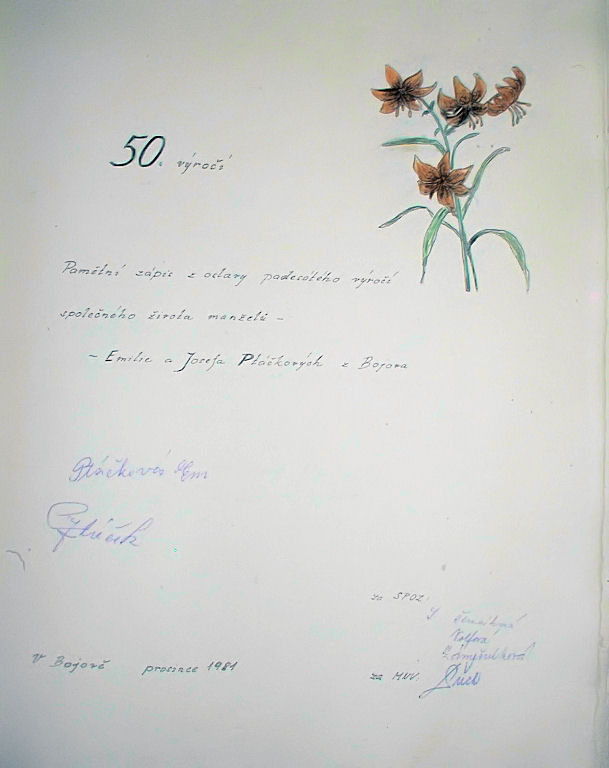 50. výročí
Pamětní zápis z oslavy padesátého výročí
společného života manželů –
– Emilie a Josefa Ptáčkových z Bojova
Ptáčková Em
Ptáček
za SPOZ:
V Bojově prosinec 1981
za MNV.